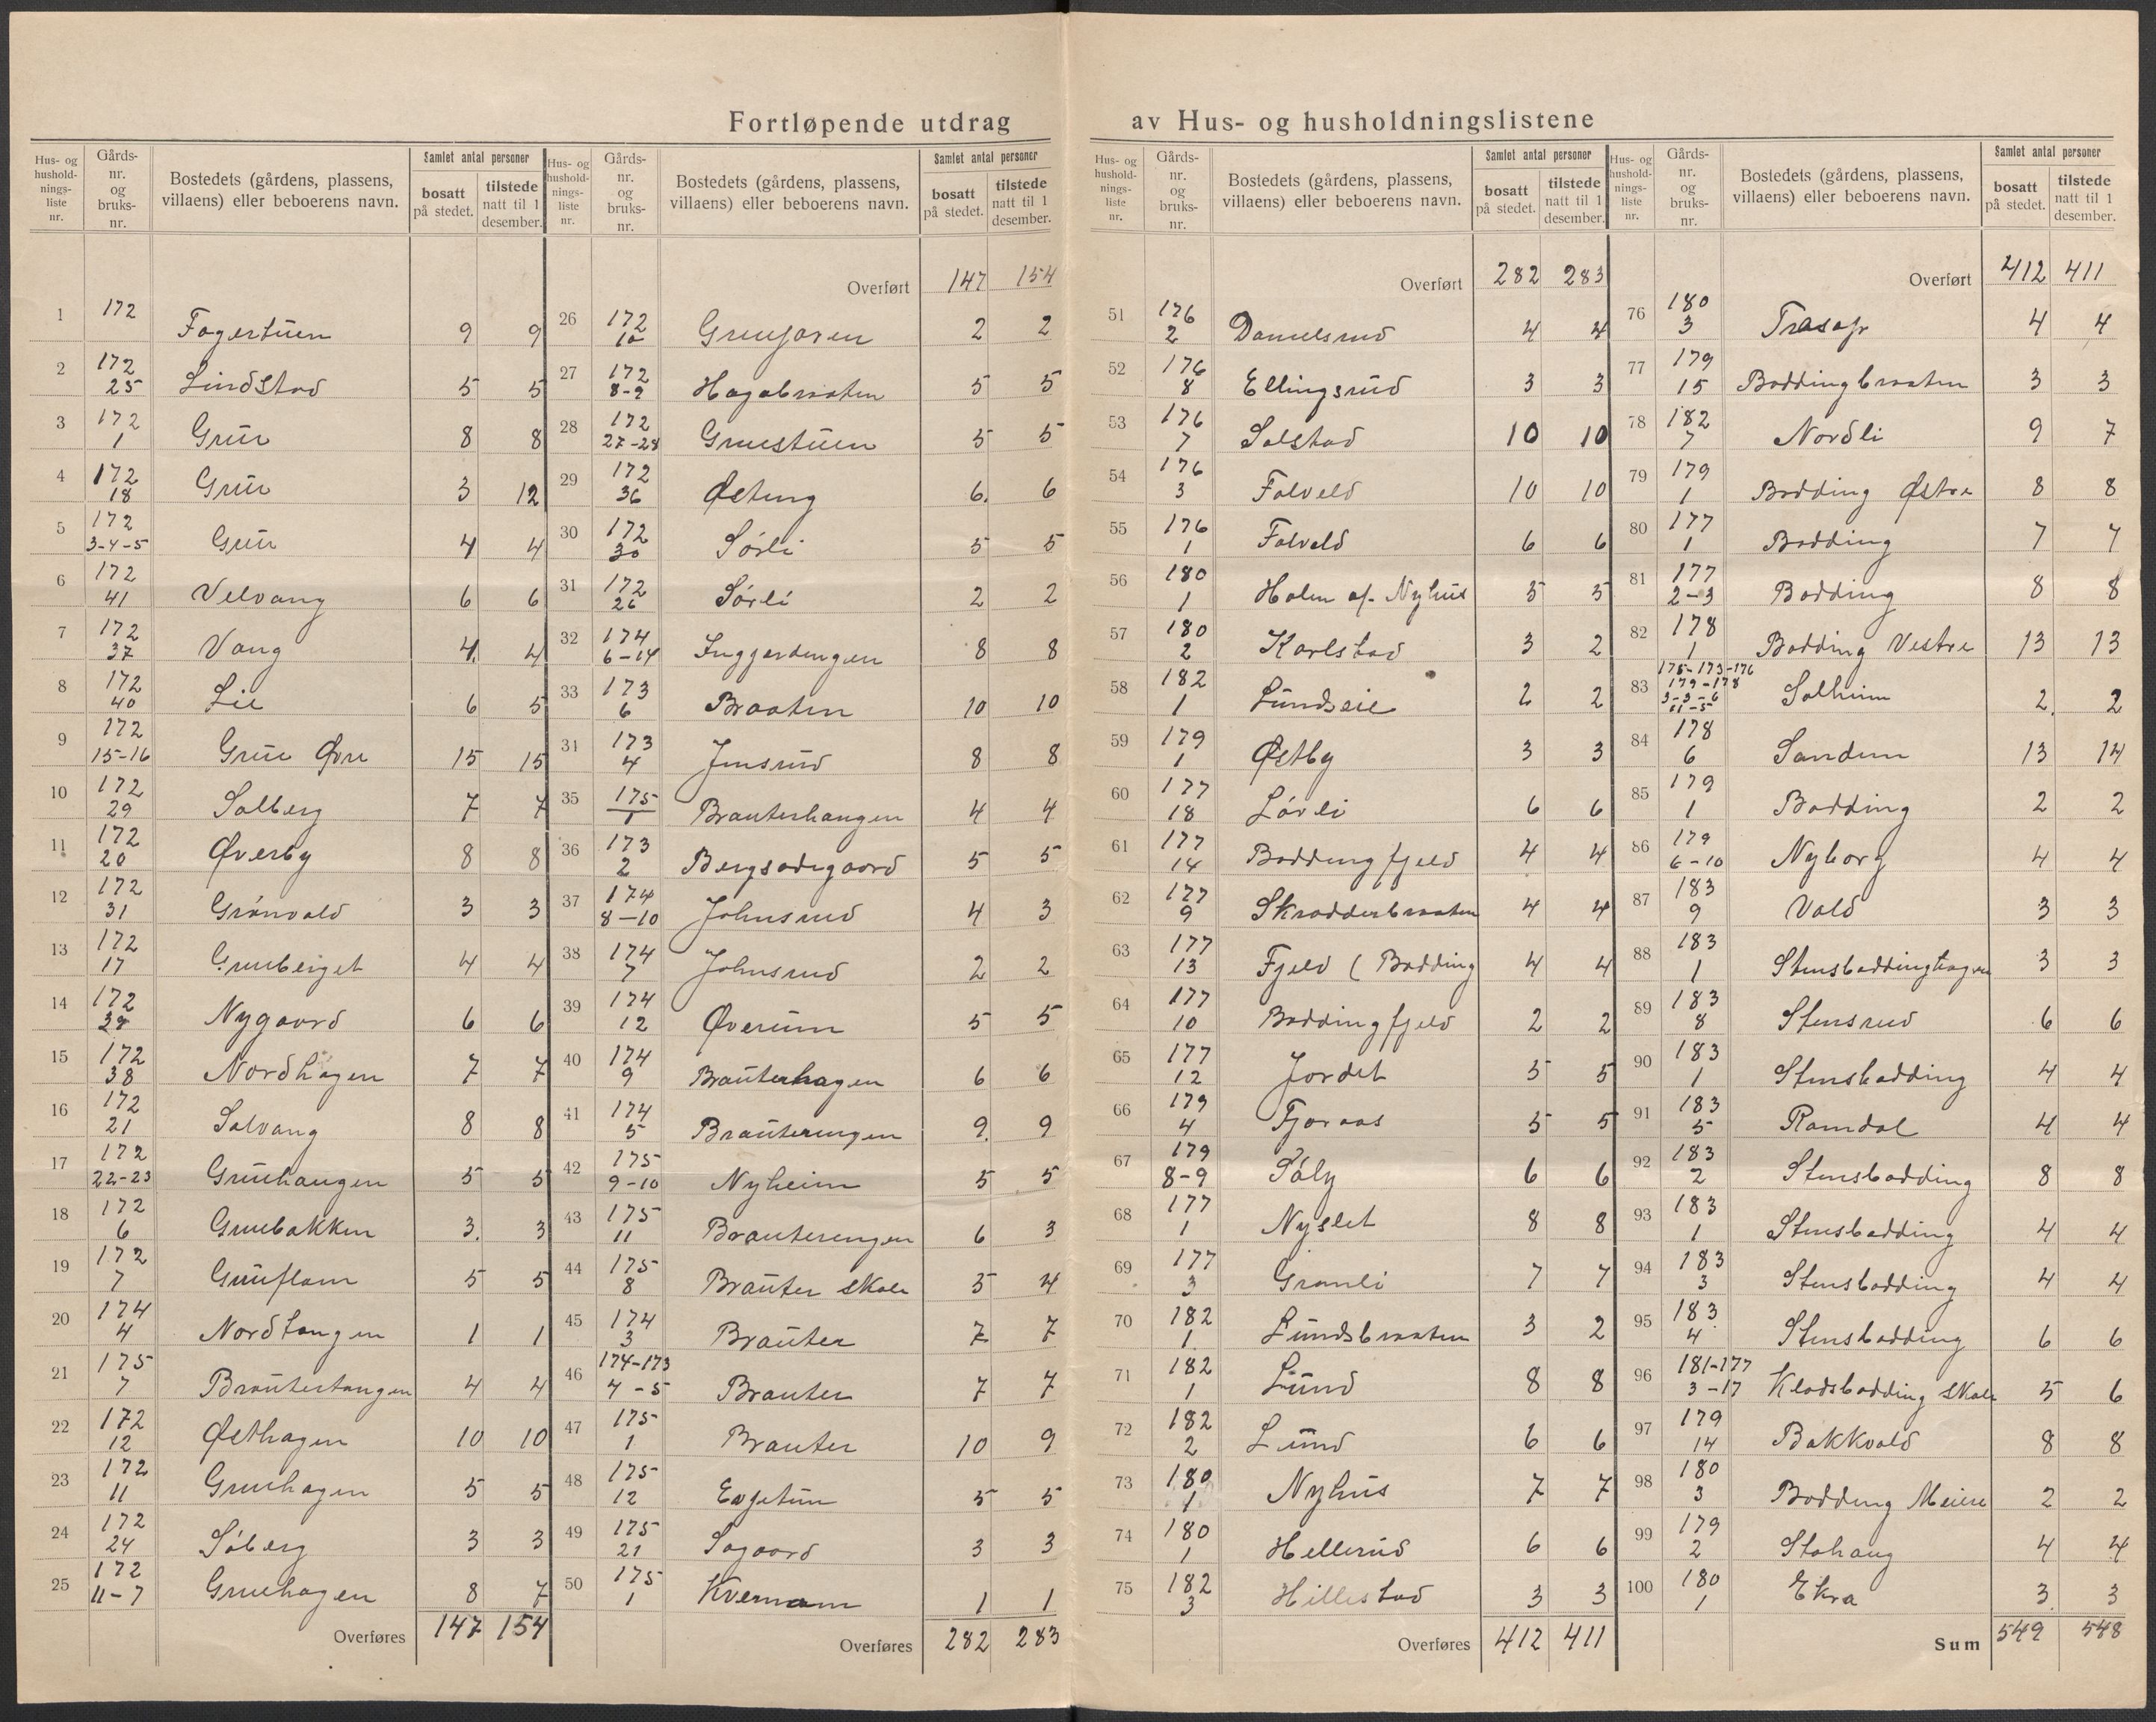 Fortløpende utdrag av Hus- og husholdningslistene
Hus- og husholdnings-liste nr. Gårds-nr. og bruks-nr. Bostedets (gårdens, plassens, villaens) eller beboerens navn. Samlet antal personer bosatt på stedet. tilstede natt til 1 desember.
1 172 Fagertuen 9 9
2 172 25 Lindstad 5 5
3 172 1 Grue 8 8
4 172 18 Grue 3 12
5 172 3-4-5 Grue 4 4
6 172 41 Velvang 6 6
7 172 37 Vang 4 4
8 172 40 Lie 6 5
9 172 15-16 Grue Øvre 15 15
10 172 29 Solberg 7 7
11 172 20 Øverby 8 8
12 172 31 Grønvold 3 3
13 172 17 Grueberget 4 4
14 172 Nygaard 6 6
15 172 38 Nordhagen 7 7
16 172 21 Solvang 8 8
17 172 22-23 Gruehaugen 5 5
18 172 6 Gruebakken 3. 3
19 172 7 Grueflom 5 5
20 174 4 Nordtangen 1 1
21 175 7 Brautertangen 4 4
22 172 12 Østhagen 10 10
23 172 11 Gruehagen 5 5
24 172 24 Søberg 3 3
25 172 11-7 Gruehagen 8 7
Overføres 147 154
Hus- og husholdnings-liste nr. Gårds-nr. og bruks-nr. Bostedets (gårdens, plassens, villaens) eller beboerens navn. Samlet antal personer bosatt på stedet. tilstede natt til 1 desember.
Overført 147 154
26 172 10 2 2
27 172 8-9 Hagabraaten 5 5
28 172 27-28 Gruestuen 5 5
29 172 36 Østeng 6. 6
30 172 30 Sørli 5 5
31 172 26 Sørli 2 2
32 174 6-14 Inggjerdengen 8 8
33 173 6 Braaten 10 10
31 173 4 Jensrud 8 8
35 175 1 Brauterhaugen 4 4
36 173 2 Bergsødegaard 5 5
37 174 8-10 Johnsrud 4 3
38 174 7 Johnsrud 2 2
39 174 12 Øverum 5 5
40 174 9 Brauterhagen 6 6
41 174 5 Brauterengen 9. 9
42 175 9-10 Nyheim 5 5
43 175 11 Brauterengen 6 3
44 175 8 Brauter skole 5 4
45 174 3 Brauter 7 7
46 174-173 4-5 Brauter 7 7
47 175 1 Brauter 10 9
48 175 12 Engetun 5 5
49 175 21 Sagaard 3 3
50 175 1 Kvernam 1 1
Overføres 282 283
Hus- og husholdnings-liste nr. Gårds-nr. og bruks-nr. Bostedets (gårdens, plassens, villaens) eller beboerens navn. Samlet antal personer bosatt på stedet. tilstede natt til 1 desember.
Overført 282 283
51 176 2 Danielsrud 4 4
52 176 8 Ellingsrud 3 3
53 176 7 Solstad 10 10
54 176 3 Folveld 10 10
55 176 1 Folveld 6 6
56 180 1 Holm af. Nyhus 5 5
57 180 2 Karlstad 3 2
58 182 1 Lundseie 2 2
59 179 1 Østby 3 3
60 177 18 Løvli 6 6
61 177 14 Boddingfjeld 4 4
62 177 9 Skrædderbraaten 4 4
63 177 13 Fjeld ( Bodding 4 4
64 177 10 Boddingfjeld 2 2
65 177 12 Jordet 5 5
66 179 4 Fjoraas 5 5
67 179 8-9 Søly 6 6
68 177 1 Nyslet 8 8
69 177 3 Granli 7 7
70 182 1 Lundsbraaten 3 2
71 182 1 Lund 8 8
72 182 2 Lund 6 6
73 180 1 Nyhus 7 7
74 180 1 Hellerud 6 6
75 182 3 Hillestad 3 3
Overføres 412 411
Hus- og husholdnings-liste nr. Gårds-nr. og bruks-nr. Bostedets (gårdens, plassens, villaens) eller beboerens navn. Samlet antal personer bosatt på stedet. tilstede natt til 1 desember.
Overført 412 411
76 180 3 4 4
77 179 15 Boddingbraaten 3 3
78 182 7 Nordli 9 7
79 179 1 Bodding Østre 8 8
80 177 1 Bodding 7 7
81 177 2-3 Bodding 8 8
82 178 1 Bodding Vestre 13 13
83 Solheim 2. 2
84 178 6 Sandem 13 14
85 179 1 Bodding 2 2
86 179 6-10 Nyborg 4 4
87 183 9 Vold 3 3
88 183 1 Stensboddinghagen 3 3
89 183 8 Stensrud 6 6
90 183 1 Stensbodding 4 4
91 183 5 Romdal 4 4
92 183 2 Stensbodding 8 8
93 183 1 Stensbodding 4 4
94 183 3 Stensbodding 4 4
95 183 4 Stensbodding 6 6
96 181-177 3-17 Klodsbodding skole 5 6
97 179 14 Bakkvold 8 8
98 180 3 Bodding Meieri 2 2
99 179 2 Stohaug 4 4
100 180 1 Ekra 3. 3
Sum 549 548